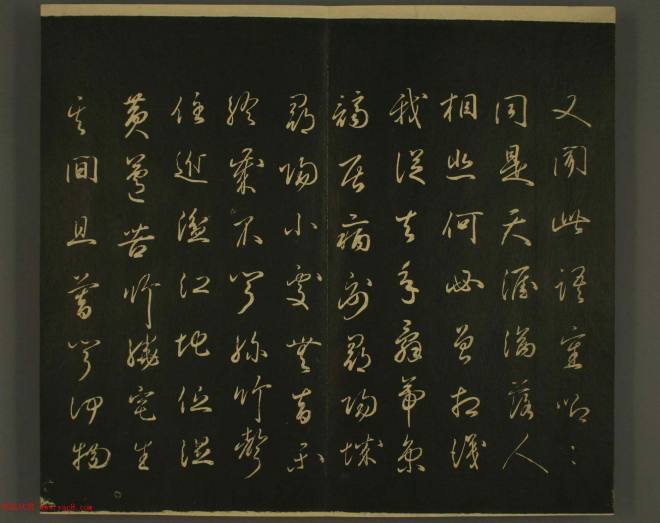 又聞此語重唧〻
同是天涯淪落人
相逢何必曾相識
我從去年辭帝京
謫居病卧潯陽城
潯陽小處無音樂
終歲不聞絲竹聲
住近湓江地低濕
黄蘆苦竹繞宅生
其間旦暮聞何物